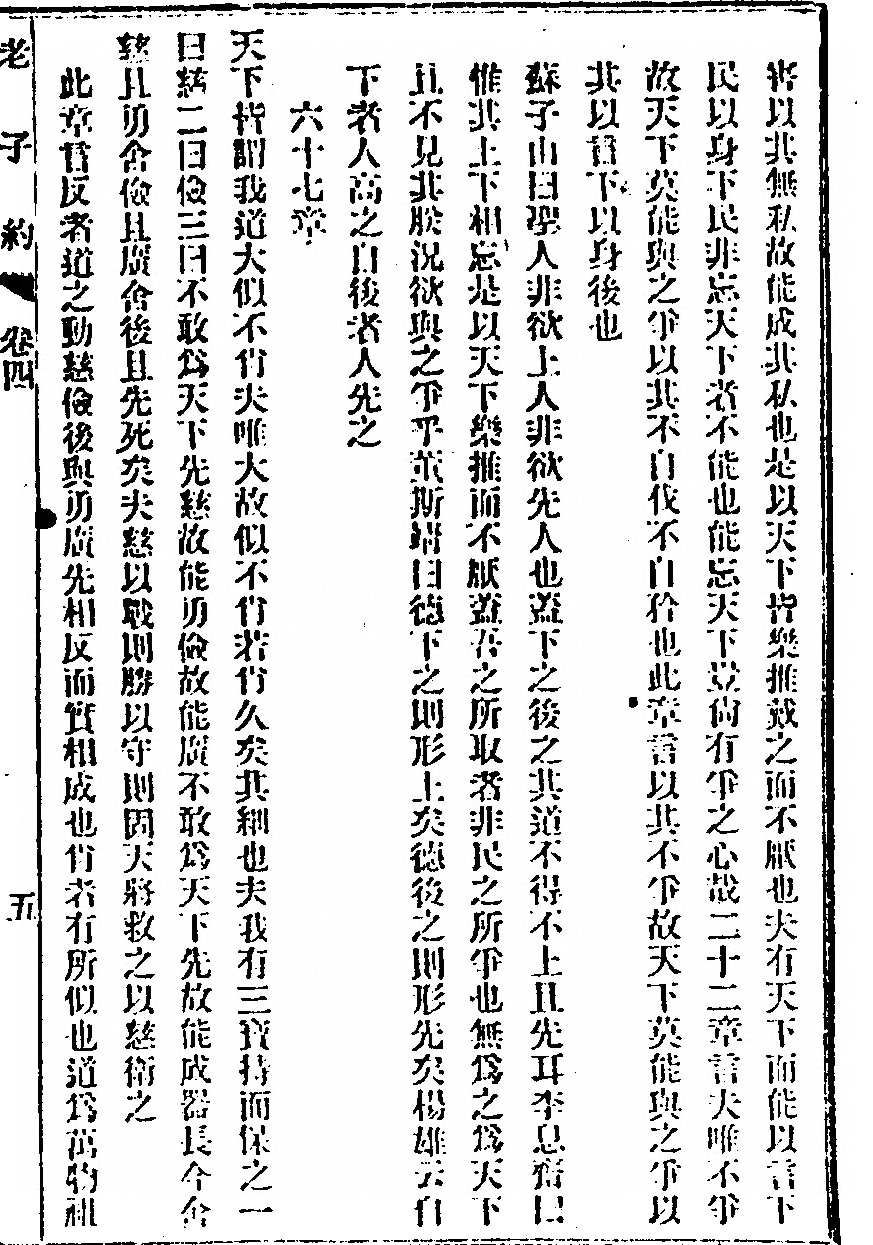 書以其無私故能成其私也是以天下皆樂推戴之而不厭也夫有天下而能以言下
民以身下民非忘天下者不能也能忘天下豈尚有爭之心哉二十二章言夫唯不爭
故天下莫能與之爭以其不自伐不自矜也此章言以其不爭故天下莫能與之爭以
其以言下以身後也
蘇子由曰聖人非欲上人非欲先人也蓋下之後之其道不得不上且先耳李息齋曰
惟其上下相忘是以天下樂推而不厭蓋吾之所取者非民之所爭也無為之為天下
且不見其朕況欲與之爭乎董斯靖曰德下之則形上矣德後之則形先矣楊雄云自
下者人高之自後者人先之
六十七章
天下皆謂我道大似不肖夫唯大故似不肖若肖久矣其細也夫我有三寶持而保之一
曰慈二曰儉三曰不敢為天下先慈故能勇儉故能廣不敢為天下先故能成器長今舍
慈且勇舍儉且廣舍後且先死矣夫慈以戰則勝以守則固天將救之以慈衛之
此章言反者道之動慈儉後與勇廣先相反而實相成也肖者有所似也道為萬物祖
老子約 卷四 五